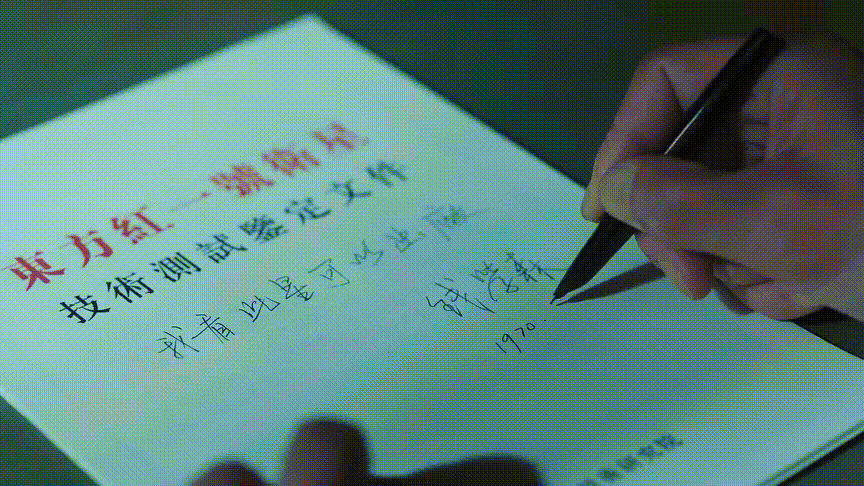 東方紅一號衛星
技術測試鑒定文件
我看此星可以出廠
钱学森
1970.
術研究院